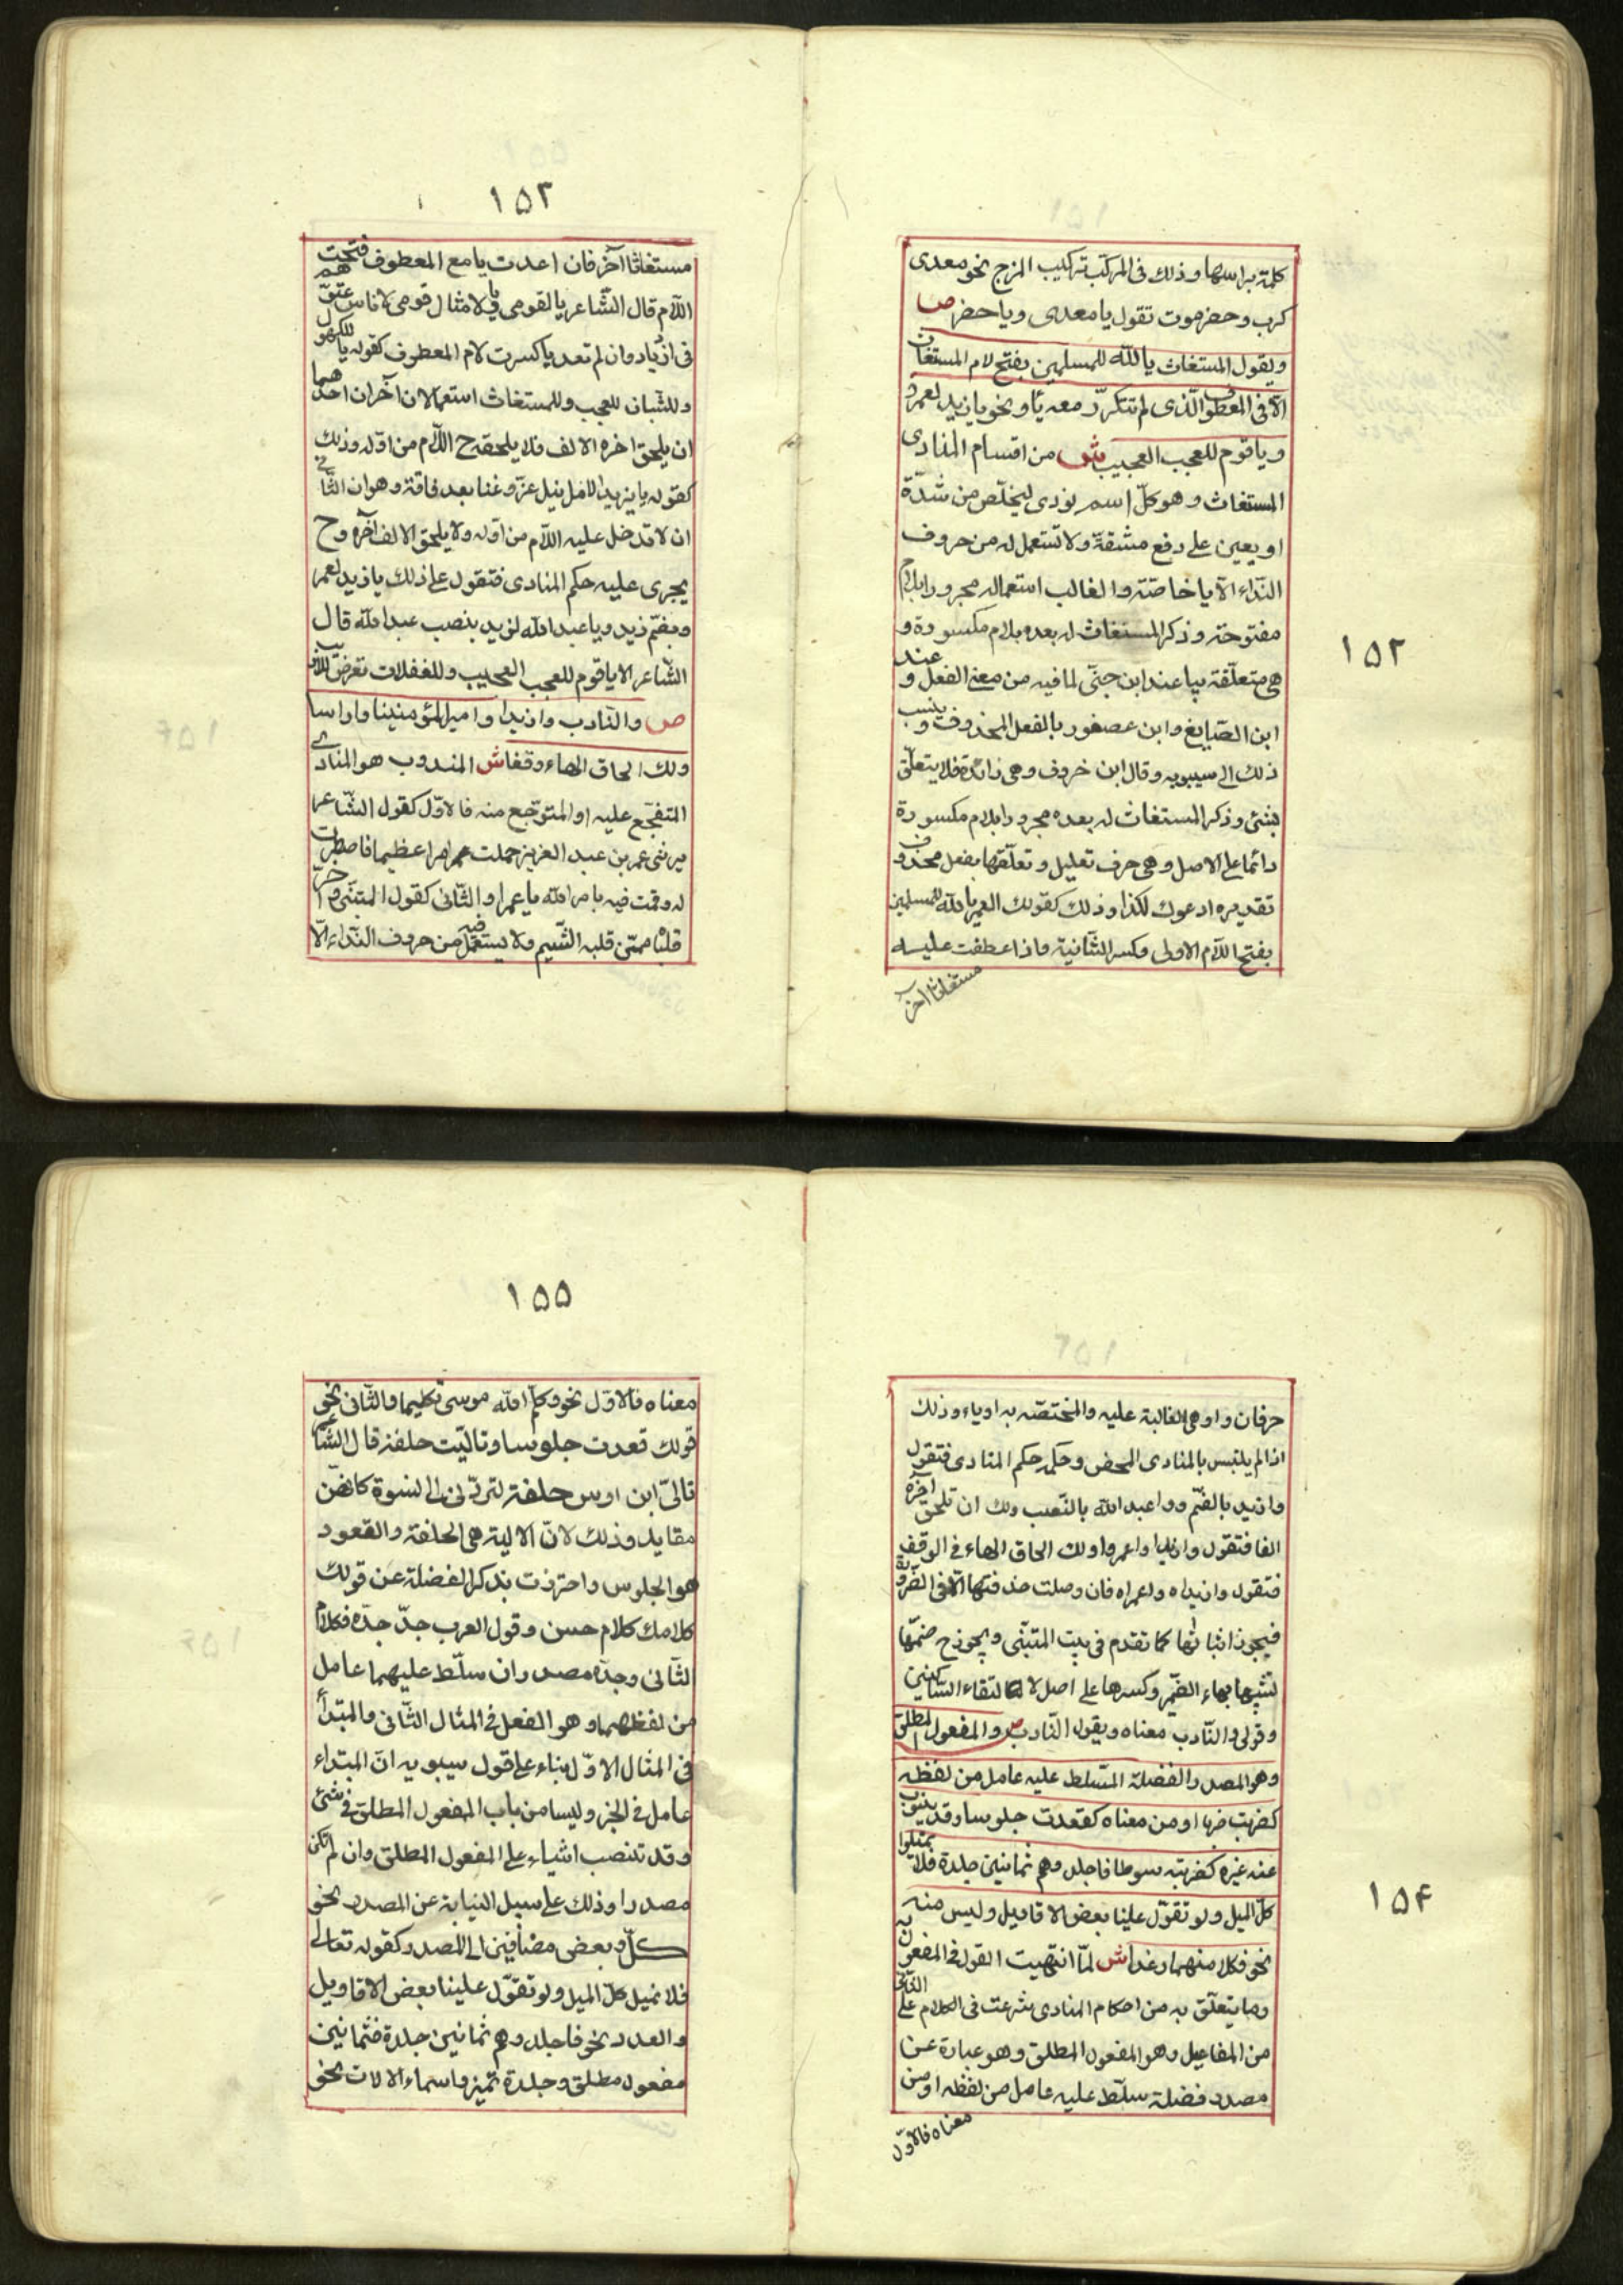 ١٥٢
كلمة براسها وذلك فى المركب تركيب المزج نحو معدى
كرب وحضرموت تقول يا معدى ويا حضر ص
ويقول المستغاث يا لله للمسلمين بفتح لام المستغاث
الا فى المعطوف الّذى لم تتكرّر معه يا ونحو يا زيدا لعمرو
ويا قوم للعجب العجيب ش من اقسام المنادى
المستغاث وهو كلّ اسم نودى ليخلّص من شدّة
او يعين على دفع مشقّة ولا تستعمل له من حروف
النّداء الّا يا خاصّة والغالب استعماله مجرورا بلام
مفتوحة وذكر المستغاث له بعده بلام مكسورة و
هى متعلّقة بيا عند ابن جنّى لما فيه من معنى الفعل وعند
ابن الصّايغ وابن عصفور بالفعل المحذوف وينسب
ذلك الى سيبويه وقال ابن خروف وهى زائدة فلا يتعلّق
بشئ وذكر المستغاث له بعده مجرورا بلام مكسورة
دائما على الاصل وهى حرف تعليل وتعلّقها بفعل محذوف
تقديره ادعوك لكذا وذلك كقولك العمر يا لله للمسلمين
بفتح اللّام الاولى وكسر الثّانية واذا عطفت عليه
مستغاثا آخر
١٥٣
مستغاثا آخر فان اعدت يا مع المعطوف فتحت
اللّام قال الشّاعر يا لقومى ويا لامثال قومى لاناس عتوّهم
فى ازدياد وان لم تعد يا كسرت لام المعطوف كقوله يا للكهول
وللشّبان للعجب وللمستغاث استعمالان آخران احدهما
ان يلحق اخره الالف فلا يلحقه ح اللّام من اوّله وذلك
كقوله يا يزيدا لامل نيل عزّ وغنا بعد فاقة وهوان الثّانى
ان لا تدخل عليه اللّام من اوّله ولا يلحق الالف آخره وح
يجرى عليه حكم المنادى فتقول على ذلك يا زيد لعمر
وبضمّ زيد ويا عبد الله لزيد بنصب عبد الله قال
الشّاعر الا يا قوم للعجب العجيب وللغفلات تعرض للاريب
ص والنّادب وا زيدا وا امير المؤمنينا وا راسا
ولك الحاق الهاء وقفا ش المندوب هو المنادى
المتفجّع عليه او المتوجّع منه فالاوّل كقول الشّاعر
يرثى عمر بن عبد العزيز حملت امرا عظيما فاصطبرت
له وقمت فيه بامر الله يا عمرا والثّانى كقول المتبنّى وا حرّ
قلباه ممّن قلبه الشّبم ولا يستعمل فيه من حروف النّداء الّا
١٥٤
حرفان وا وهى الغالبة عليه والمختصّه به او ياء وذلك
اذا لم يلتبس بالمنادى المحض وحكمه حكم المنادى فتقول
وا زيد بالضّم ووا عبد الله بالنّصب ولك ان تلحق آخره
الفا فتقول وا زيدا وا عمرا ولك الحاق الهاء فى الوقف
فتقول وا زيداه وا عمراه فان وصلت حذفتها الّا فى الضّرورة
فيجوز اثباتها كما تقدم فى بيت المتبنّى ويجوز ح ضمّها
تشبيها بهاء الضّمير وكسرها على اصل لالتقاء السّاكنين
وقولى والنّادب معناه ويقول النّادب ص والمفعول المطلق
وهو المصدر الفضلة المتسلط عليه عامل من لفظه
كضربت ضربا او من معناه كقعدت جلوسا وقد ينوب
عنه غيره كضربته سوطا فاجلدوهم ثمانين جلدة فلا تميلوا
كلّ الميل ولو تقوّل علينا بعض الاقاويل وليس منه
نحو فكلا منهما رغدا ش لمّا انتهيت القول فى المفعول به
وما يتعلّق به من احكام المنادى شرعت فى الكلام على الثّانى
من المفاعيل وهو المفعول المطلق وهو عبارة عن
مصدر فضلة سلّط عليه عامل من لفظه او من
معناه فالاوّل
١٥٥
معناه فالاوّل نحو وكلّم الله موسى تكليما والثّانى نحو
قولك قعدت جلوسا وتاليّت حلفة قال الشّاعر
تالىّ ابن اوس حلفة ليردّنى الى نسوة كانهنّ
مقايد وذلك لانّ الالية هى الحلفة والقعود
هو الجلوس واحترزت بذكر الفضلة عن قولك
كلامك كلام حسن وقول العرب جدّ جدّه فكلام
الثّانى وجدّه مصدر ان سلّط عليهما عامل
من لفظهما وهو الفعل فى المثال الثّانى والمبتدأ
فى المثال الاوّل بناء على قول سيبويه انّ المبتداء
عامل فى الخبر وليسا من باب المفعول المطلق فى شئ
وقد تنصب اشياء على المفعول المطلق وان لم تكن
مصدرا وذلك على سبيل النيابة عن المصدر نحو
كلّ وبعض مضافين الى المصدر كقوله تعالى
فلا تميل كلّ الميل ولو تقوّل علينا بعض الاقاويل
والعدد نحو فاجلدوهم ثمانين جلدة فثمانين
مفعول مطلق وجلدة تميز واسماء الالات نحو